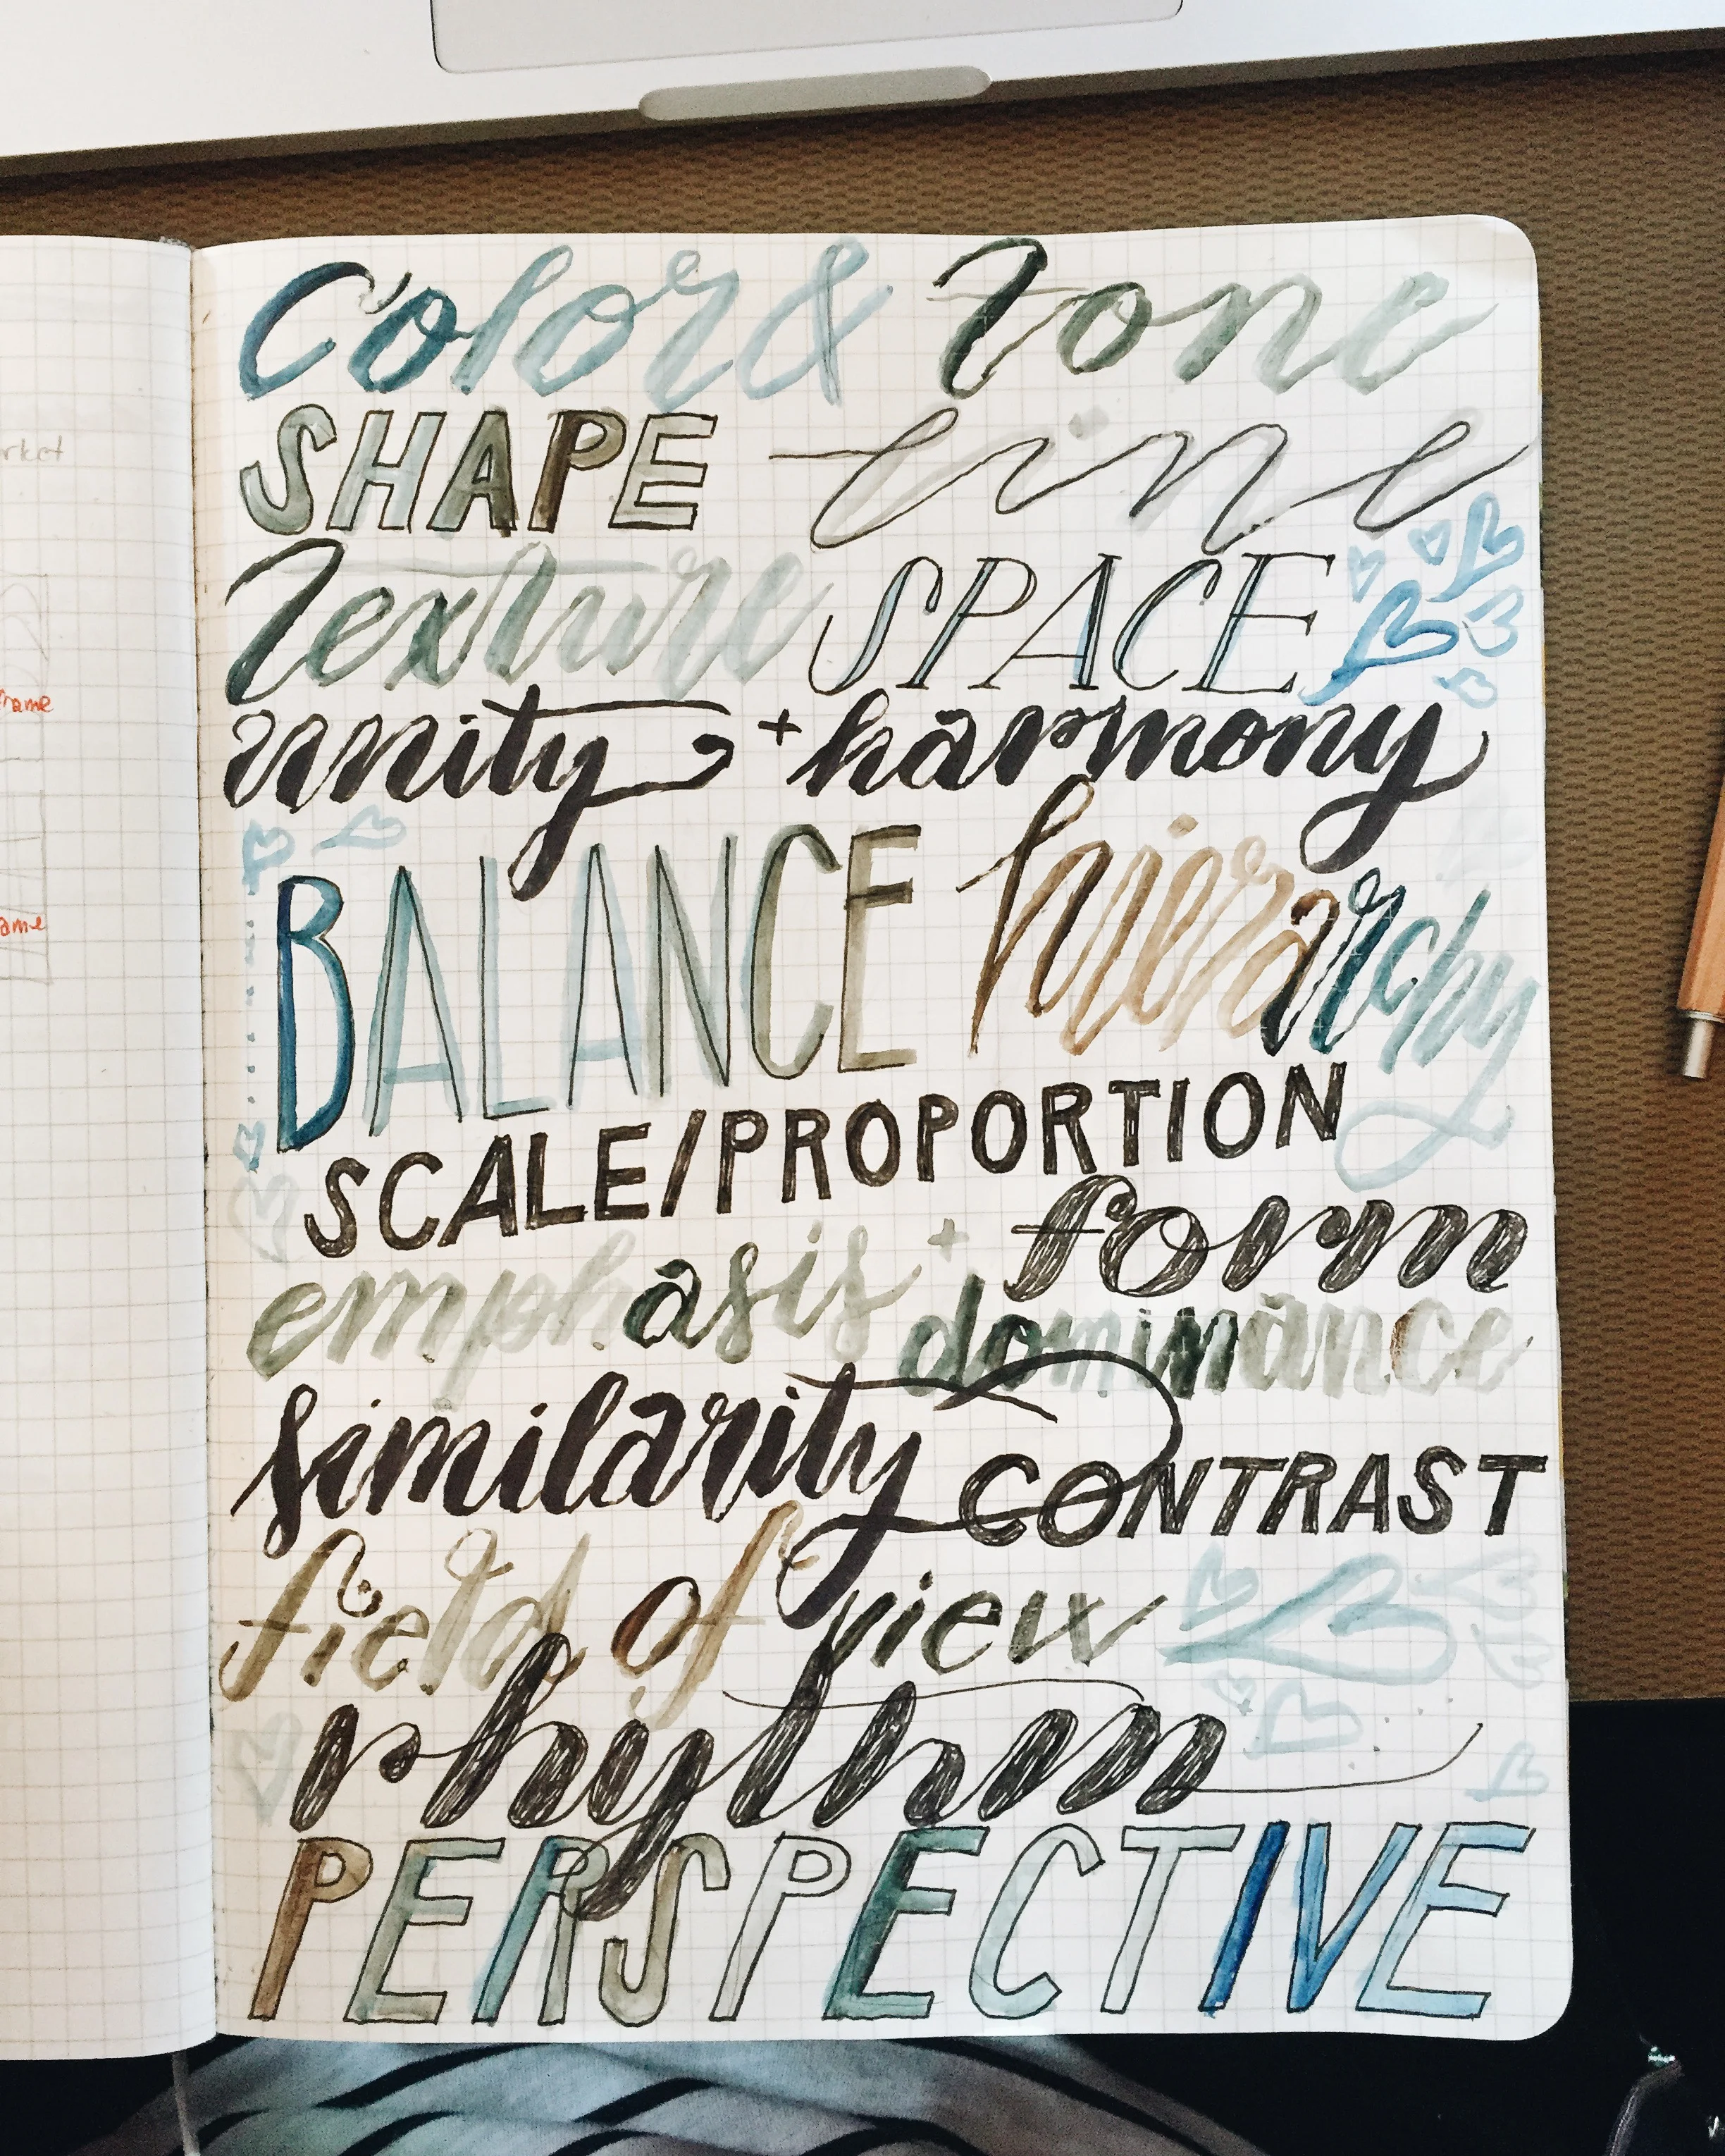 rket
name
ame
Color & Tone
SHAPE line
Texture SPACE
unity + harmony
BALANCE hierarchy
SCALE/PROPORTION
form
emphasis + dominance
similarity CONTRAST
field of view
rhythm
PERSPECTIVE